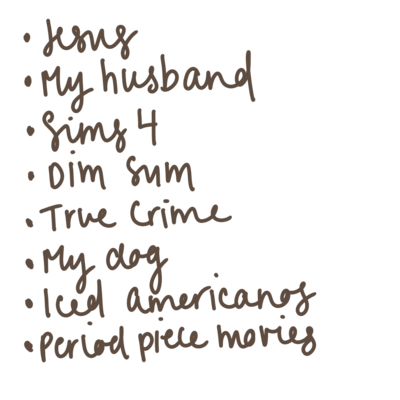 • Jesus
• My husband
• Sims 4
• Dim Sum
• True Crime
• My dog
• Iced americanos
• Period piece movies